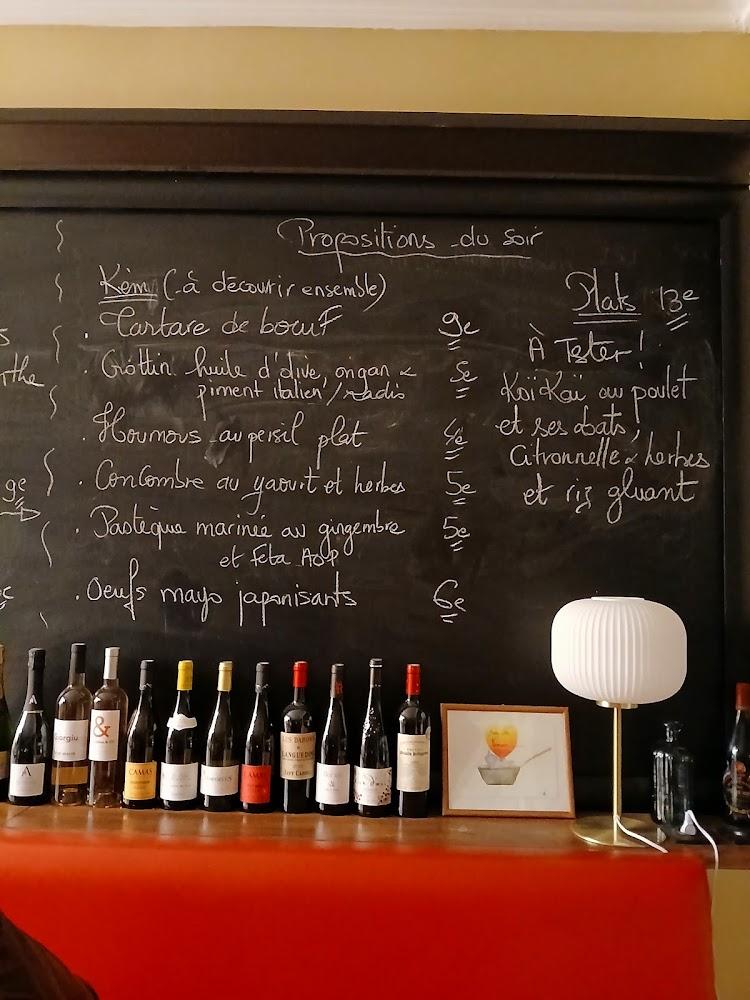 Propositions du soir
Kèm (à découvrir ensemble)
. Tartare de bœuf 9e
. Crottin huile d'olive, origan &
piment italien / radis 5e
. Houmous au persil plat 4e
. Concombre au yaourt et herbes 5e
. Pastèque marinée au gingembre 5e
et feta AOP
. Oeufs mayo japonisants 6e
Plats 13e
À Tester !
KoïKoï au poulet
et ses abats,
Citronnelle & herbes
et riz gluant
rthe
9e
A
orgiu
&
CAMAS
CAMAS
LANGUEDOC